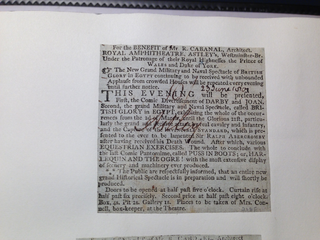 For the BENEFIT of Mr. R. CABANAL, Architect.
ROYAL AMPHITHEATRE, ASTLEY's, Westminster-Br.
Under the Patronage of their Royal Highnesses the Prince of
WALES and Duke of YORK.
The New Grand Military and Naval Spectacle of BRITISH
GLORY in EGYPT continuing to be received with unbounded
Applause from crowded Houses will be repeated every evening
until further notice.
THIS EVENING will be presented,
First, the Comic Divertisement of DARBY and JOAN.
Second, the grand Military and Naval Spectacle, called BRI-
TISH GLORY in EGYPT,
STANDARD, which is pre-
Sir RALPH ABERCROMBY
after having received his Death Wound. After which, various
EQUESTRIAN EXERCISES. The whole to conclude with
a Comic Pantomime, called PUSS IN BOOTS; or, HAR-
LEQUIN AND THE OGRE: with the most extensive display
of scenery and machinery ever exhibited.
The Public are respectfully informed, that an entire new
grand Historical Spectacle is in preparation and will shortly be
produced.
Doors to be opened at half past five o'clock. Curtain rise at
half past six precisely. Second price at half past eight o'clock.
Places to be taken of Mrs. Con-
nell, box-keeper, at the Theatre.